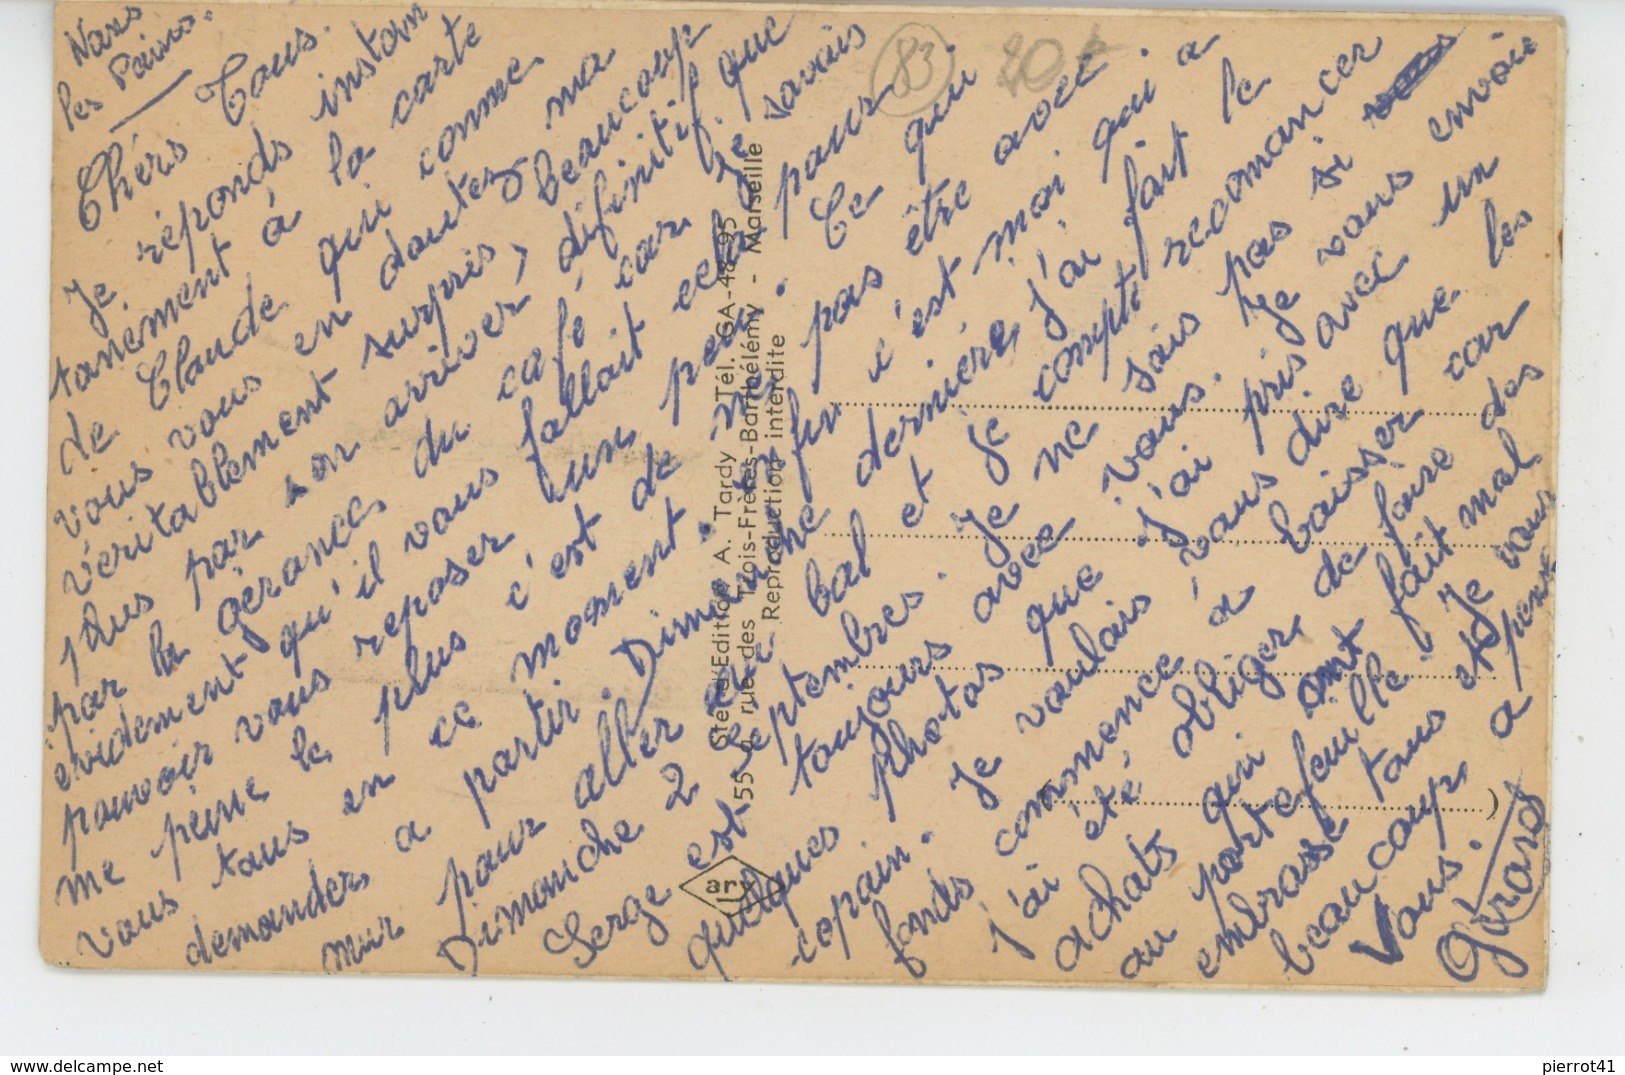 Nans
les Pains.
Chérs Tous.
Je réponds instan
tanément à la carte
de Claude qui comme
vous vous en doutez ma
véritablement surpris, beaucoup
plus par son arriver définitif que
par la gérances du café car je savais
évidement qu'il vous fallait cela pour
pouvoir vous reposer un peu. Ce qui
me peine le plus c'est de ne pas être avec
vous tous en ce moment. Enfin c'est moi qui a
demander a partir. Dimanche dernière j'ai fait le
mur pour aller au bal et je compte recomancer
Dimanche 2 Septembres. Je ne sais pas si
Serge est toujours avec vous. Je vous envoie
quelques photos que j'ai pris avec un
copain. Je voulais vous dire que les
fonds commence a baisser car
j'ai été obliger de faire des
achats qui ont fait mal
au portefeuille. Je vous
embrasse tous et pense
beaucoup a
Vous.
Gérard
83
20 f
Sté d'Edition A. Tardy Tél. GA-48-95
55, rue des Trois-Frères-Barthélémy - Marseille
Reproduction interdite
arx
pierrot41